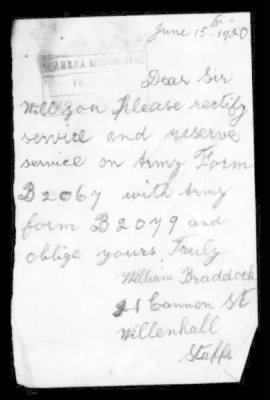 June 15th 1920
Dear Sir
Will you please rectify
service and reserve
service on Army Form
B 2067 with Army
form B 2079 and
oblige yours Truly
William Braddock
21 Cannon St
Willenhall
Staffs